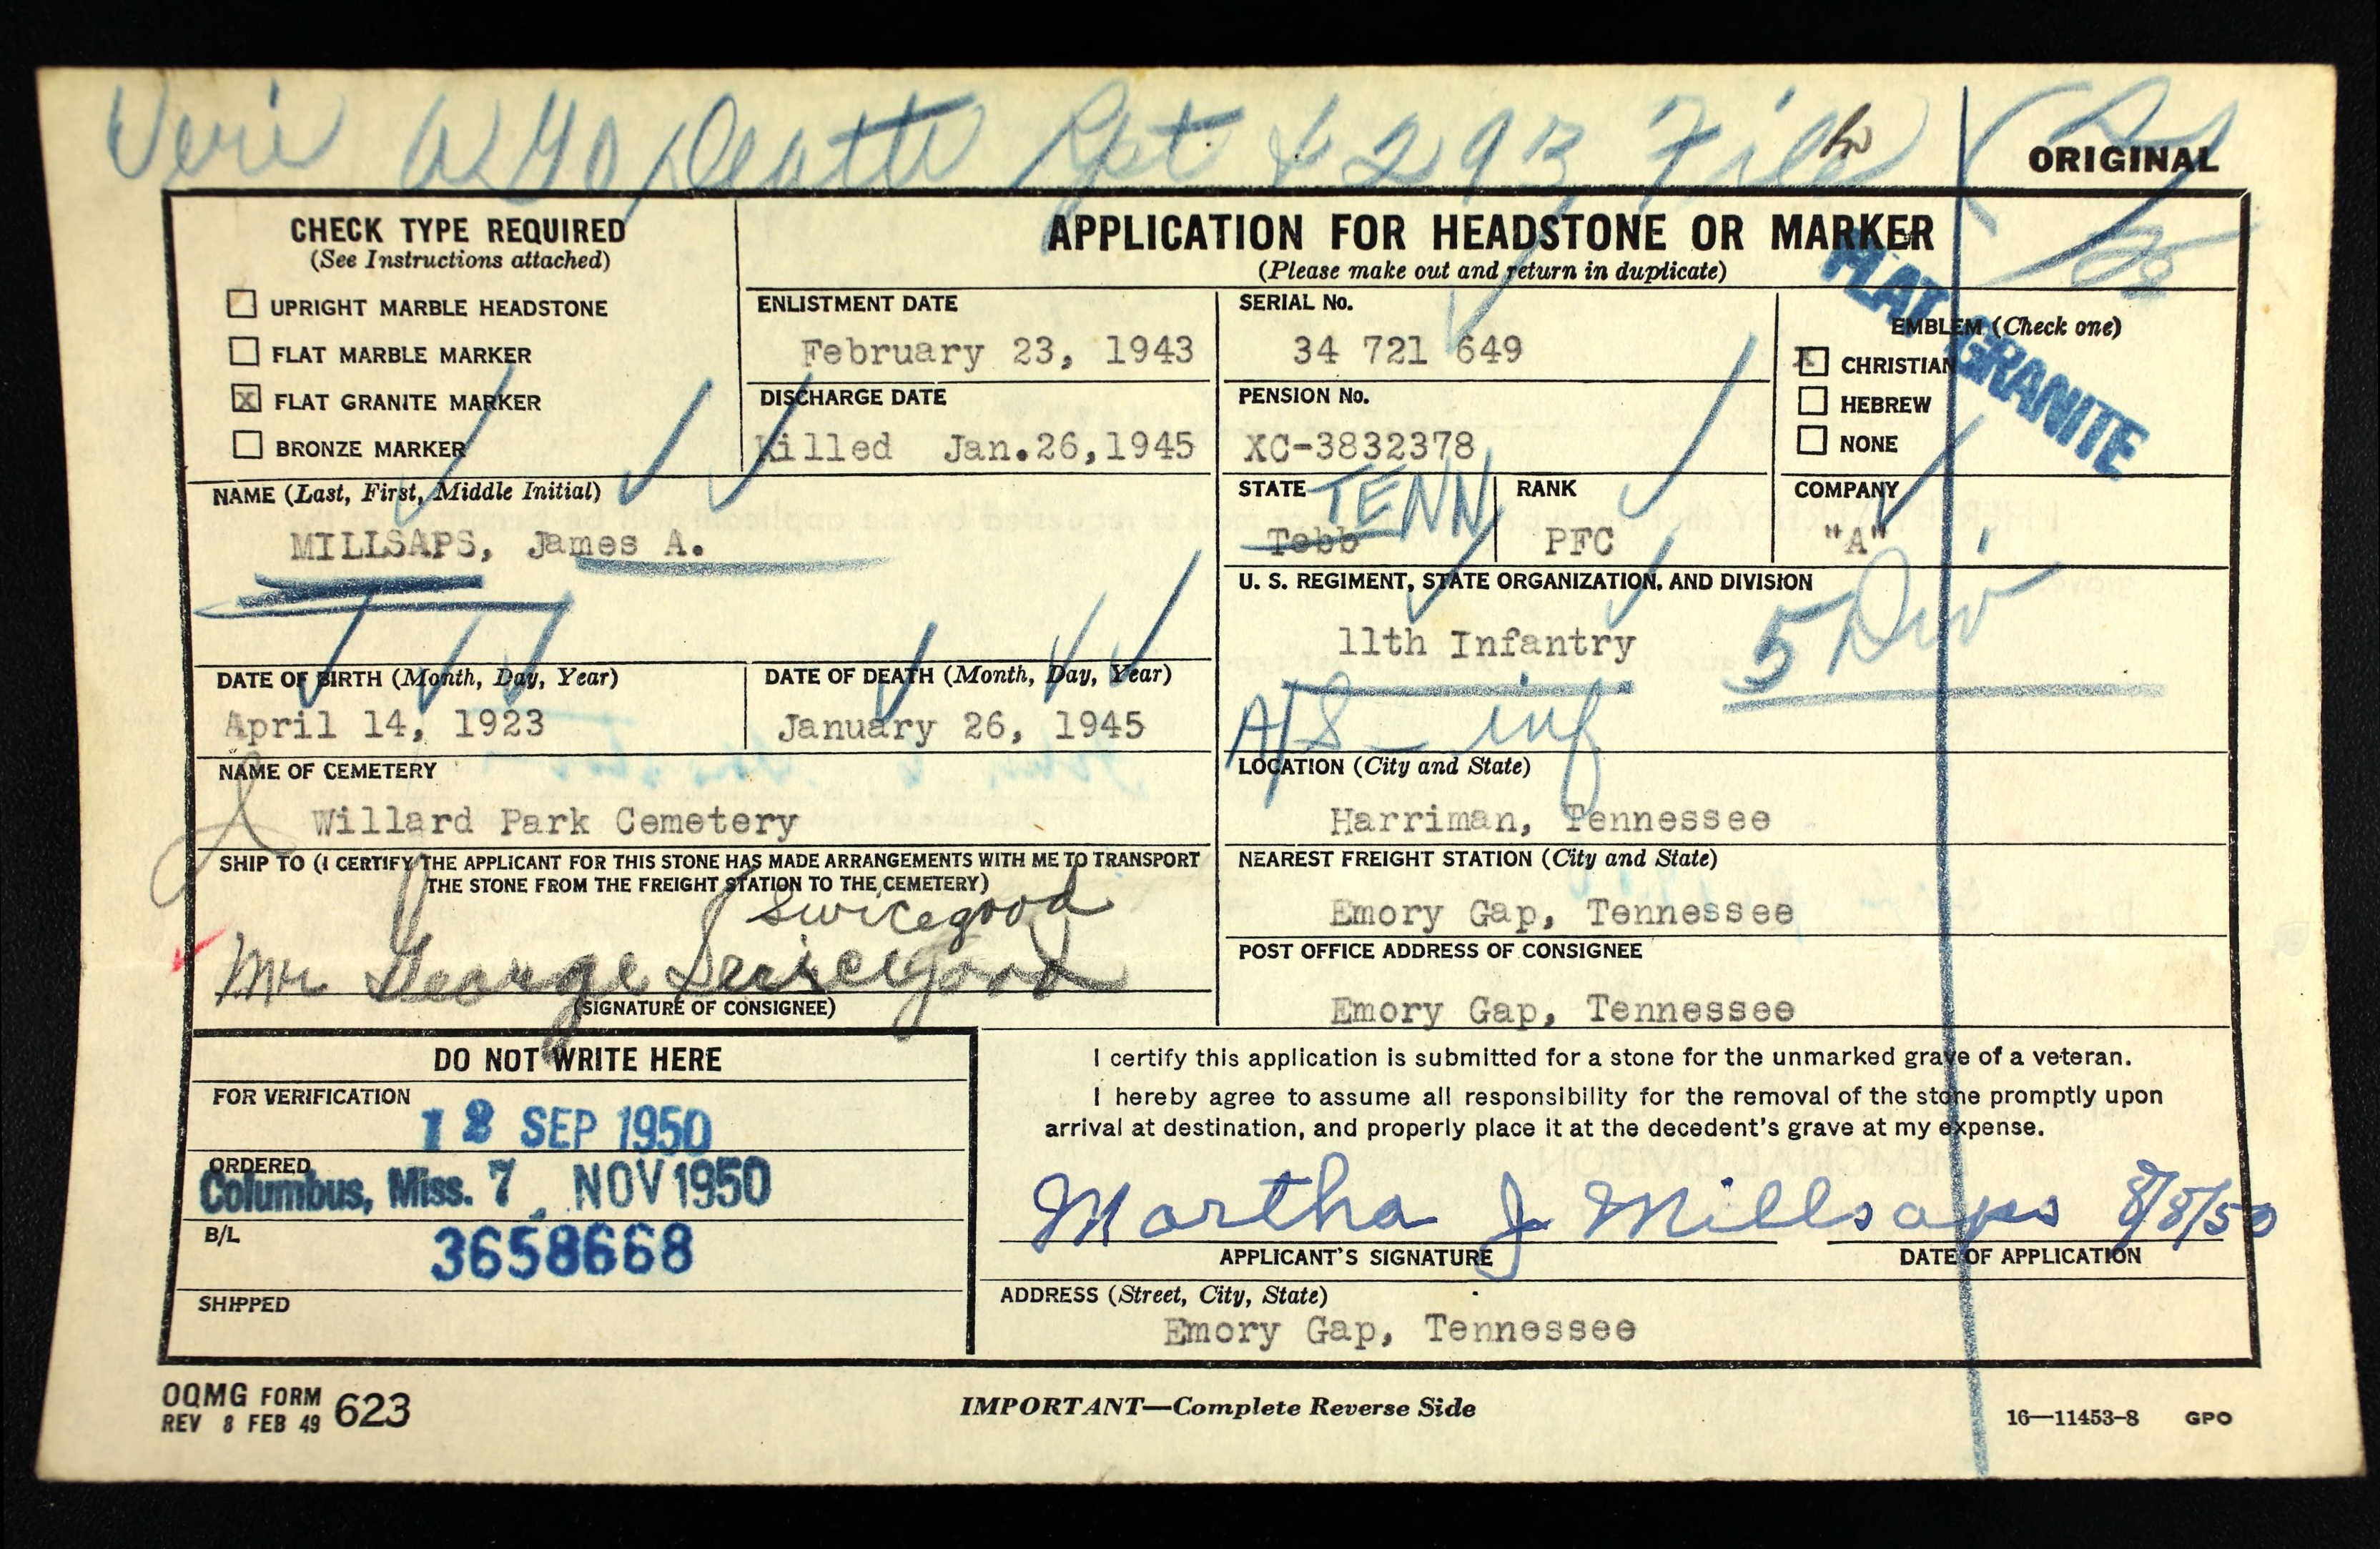 Veri AGO Death Rpt & 293 File
ORIGINAL
CHECK TYPE REQUIRED
(See Instructions attached)
UPRIGHT MARBLE HEADSTONE
FLAT MARBLE MARKER
X FLAT GRANITE MARKER
BRONZE MARKER
APPLICATION FOR HEADSTONE OR MARKER
(Please make out and return in duplicate)
FLAT GRANITE
ENLISTMENT DATE
February 23, 1943
SERIAL No.
34 721 649
EMBLEM (Check one)
X CHRISTIAN
HEBREW
NONE
DISCHARGE DATE
Killed Jan.26,1945
PENSION No.
XC-3832378
NAME (Last, First, Middle Initial)
MILLSAPS, James A.
STATE TENN
Tebb
RANK
PFC
COMPANY
"A"
U. S. REGIMENT, STATE ORGANIZATION, AND DIVISION
11th Infantry 5 Div
A/S - inf
DATE OF BIRTH (Month, Day, Year)
April 14, 1923
DATE OF DEATH (Month, Day, Year)
January 26, 1945
NAME OF CEMETERY
Willard Park Cemetery
LOCATION (City and State)
Harriman, Tennessee
SHIP TO (I CERTIFY THE APPLICANT FOR THIS STONE HAS MADE ARRANGEMENTS WITH ME TO TRANSPORT
THE STONE FROM THE FREIGHT STATION TO THE CEMETERY)
Swicegood
Mr George Swicegood
(SIGNATURE OF CONSIGNEE)
NEAREST FREIGHT STATION (City and State)
Emory Gap, Tennessee
POST OFFICE ADDRESS OF CONSIGNEE
Emory Gap, Tennessee
DO NOT WRITE HERE
FOR VERIFICATION
12 SEP 1950
ORDERED
Columbus, Miss. 7 NOV 1950
B/L
3658668
SHIPPED
I certify this application is submitted for a stone for the unmarked grave of a veteran.
I hereby agree to assume all responsibility for the removal of the stone promptly upon
arrival at destination, and properly place it at the decedent's grave at my expense.
Martha J Millsaps 8/8/50
APPLICANT'S SIGNATURE DATE OF APPLICATION
ADDRESS (Street, City, State)
Emory Gap, Tennessee
OQMG FORM 623
REV 8 FEB 49
IMPORTANT—Complete Reverse Side
16—11453-8 GPO